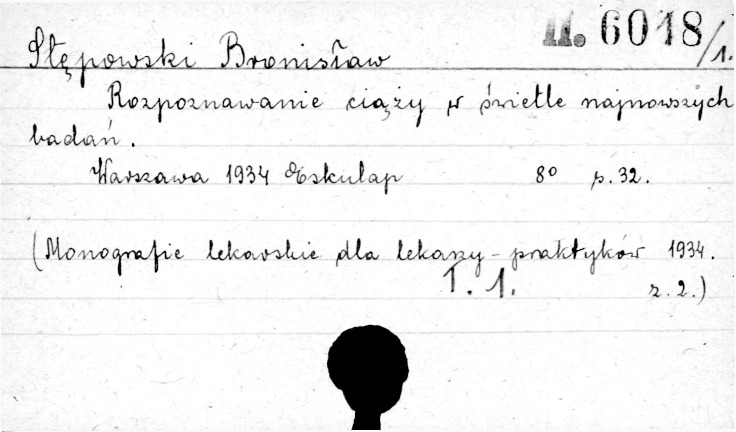 II. 6018/1.
Stępowski Bronisław
Rozpoznawanie ciąży w świetle najnowszych
badań.
Warszawa 1934 Eskulap 8º p. 32.
(Monografie lekarskie dla lekarzy-praktyków 1934.
T. 1. z. 2.)